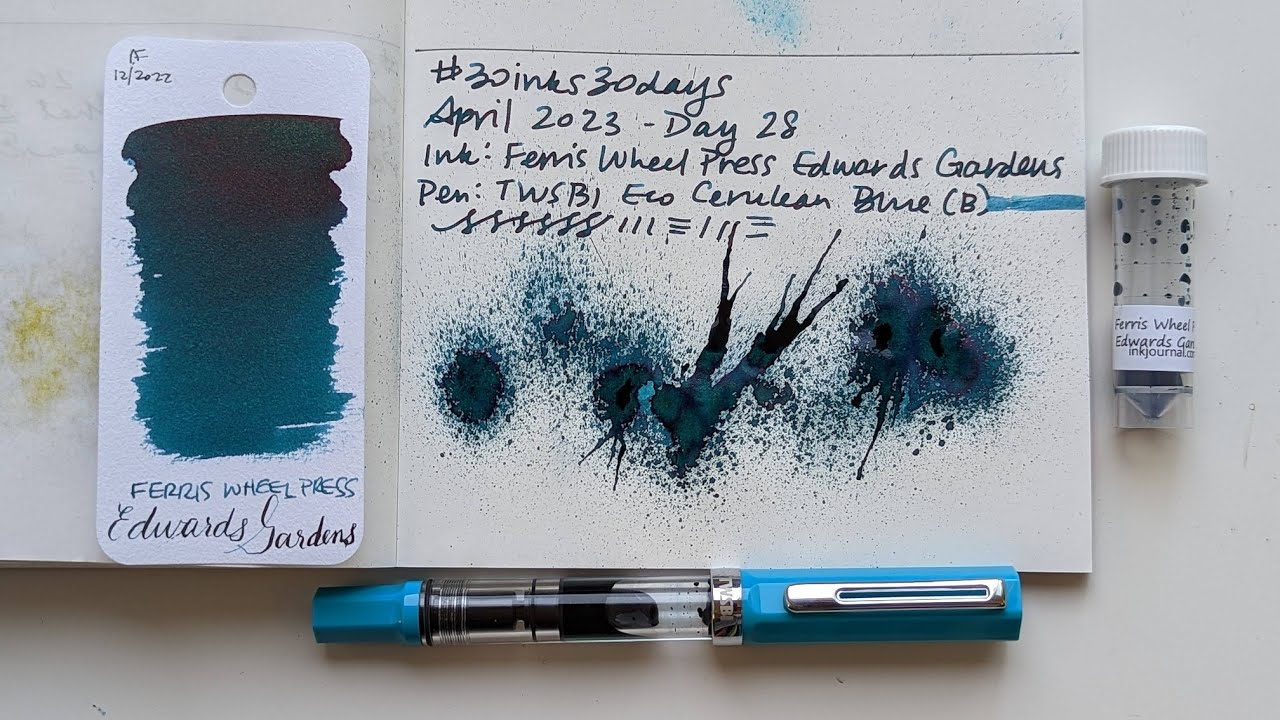 AF
12/2022
FERRIS WHEEL PRESS
Edwards Gardens
#30inks30days
April 2023 - Day 28
Ink: Ferris Wheel Press Edwards Gardens
Pen: TWSBI Eco Cerulean Blue (B)
Ferris Wheel P
Edwards Gar
inkjournal.co
TWSBI